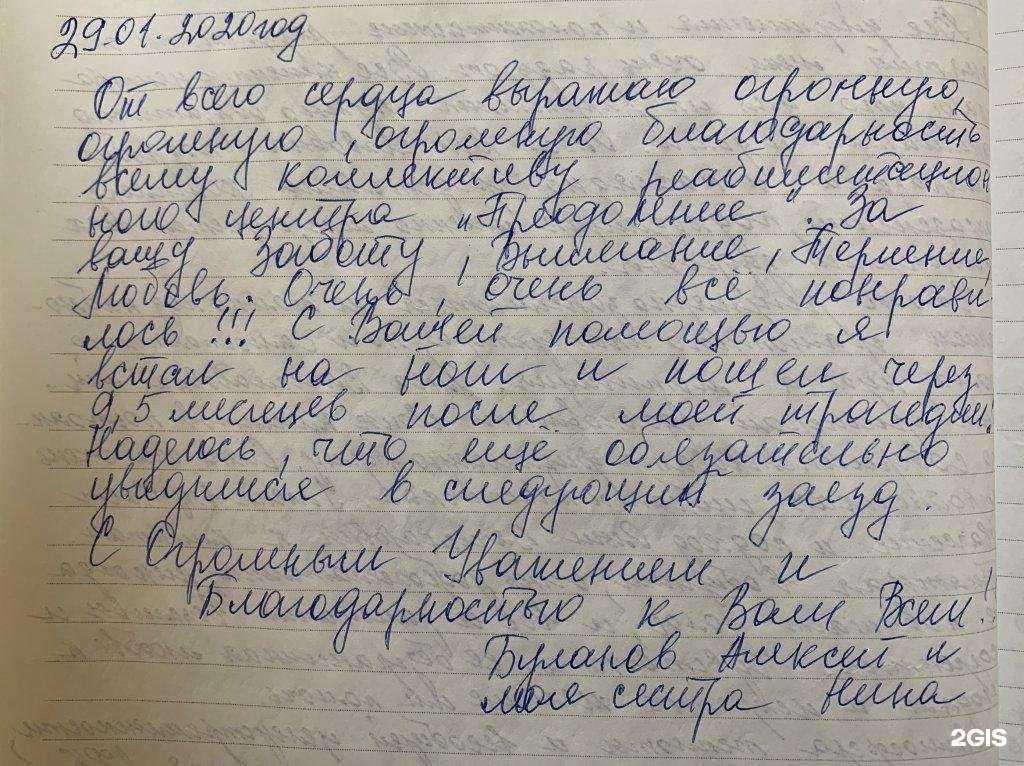 29.01.2020год
От всего сердца выражаю огромную,
огромную, огромную благодарность
всему коллективу реабилитацион
ного центра "Преодоление". За
вашу Заботу, Внимание, Терпение,
Любовь. Очень, очень всё понрави
лось!!! С Вашей помощью я
встал на ноги и пошел через
9,5 месяцев после моей трагедии.
Надеюсь, что еще обязательно
увидимся в следующий заезд.
С Огромным Уважением и
Благодарностью к Вам Всем!
Буланов Алексей и
моя сестра Нина
2GIS